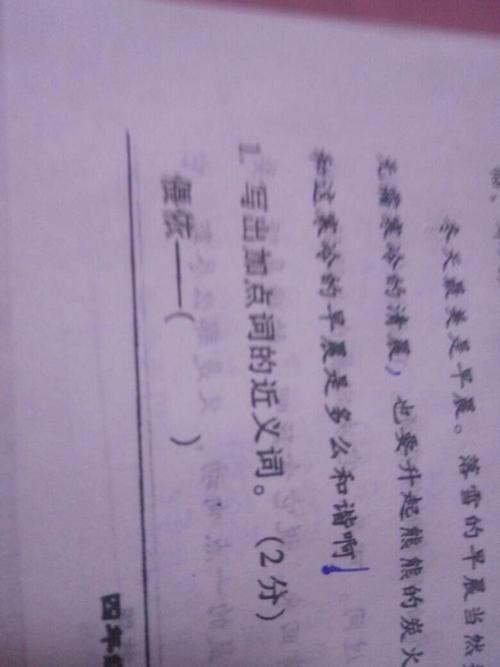 冬天最美是早晨。落雪的早晨当然
无霜寒冷的清晨，也要升起熊熊的炭火
和这寒冷的早晨是多么和谐啊！
1. 写出加点词的近义词。（2分）
——（ ）
四年级